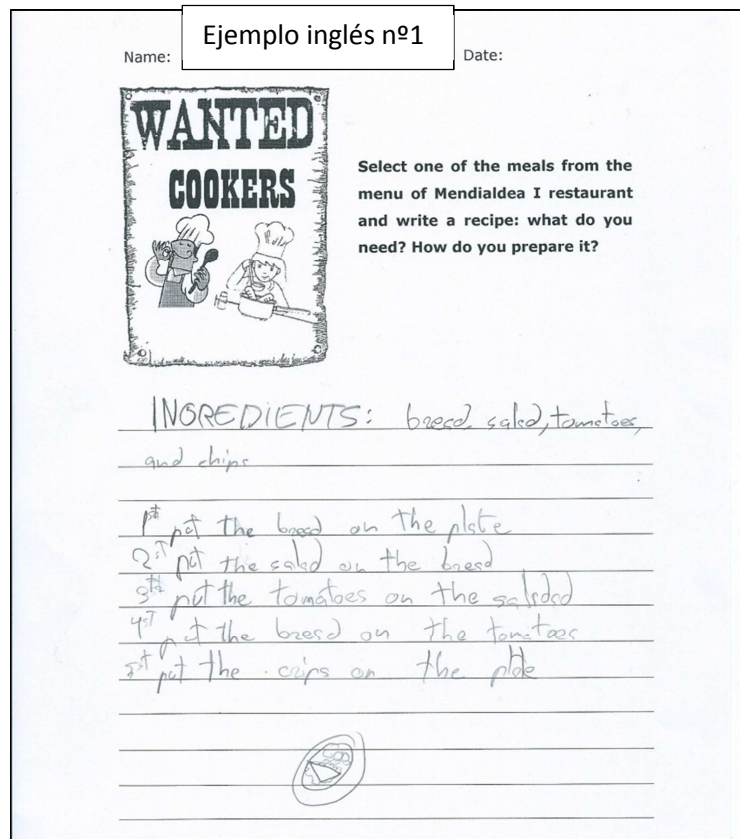 Ejemplo inglés nº1
Name:
Date:
WANTED
COOKERS
Select one of the meals from the
menu of Mendialdea I restaurant
and write a recipe: what do you
need? How do you prepare it?
INGREDIENTS: bread, salad, tomatoes,
and chips
1st put the bread on the plate
2st put the salad on the bread
3th put the tomatoes on the
4st put the bread on the tomatoes
5st put the crips on the plate